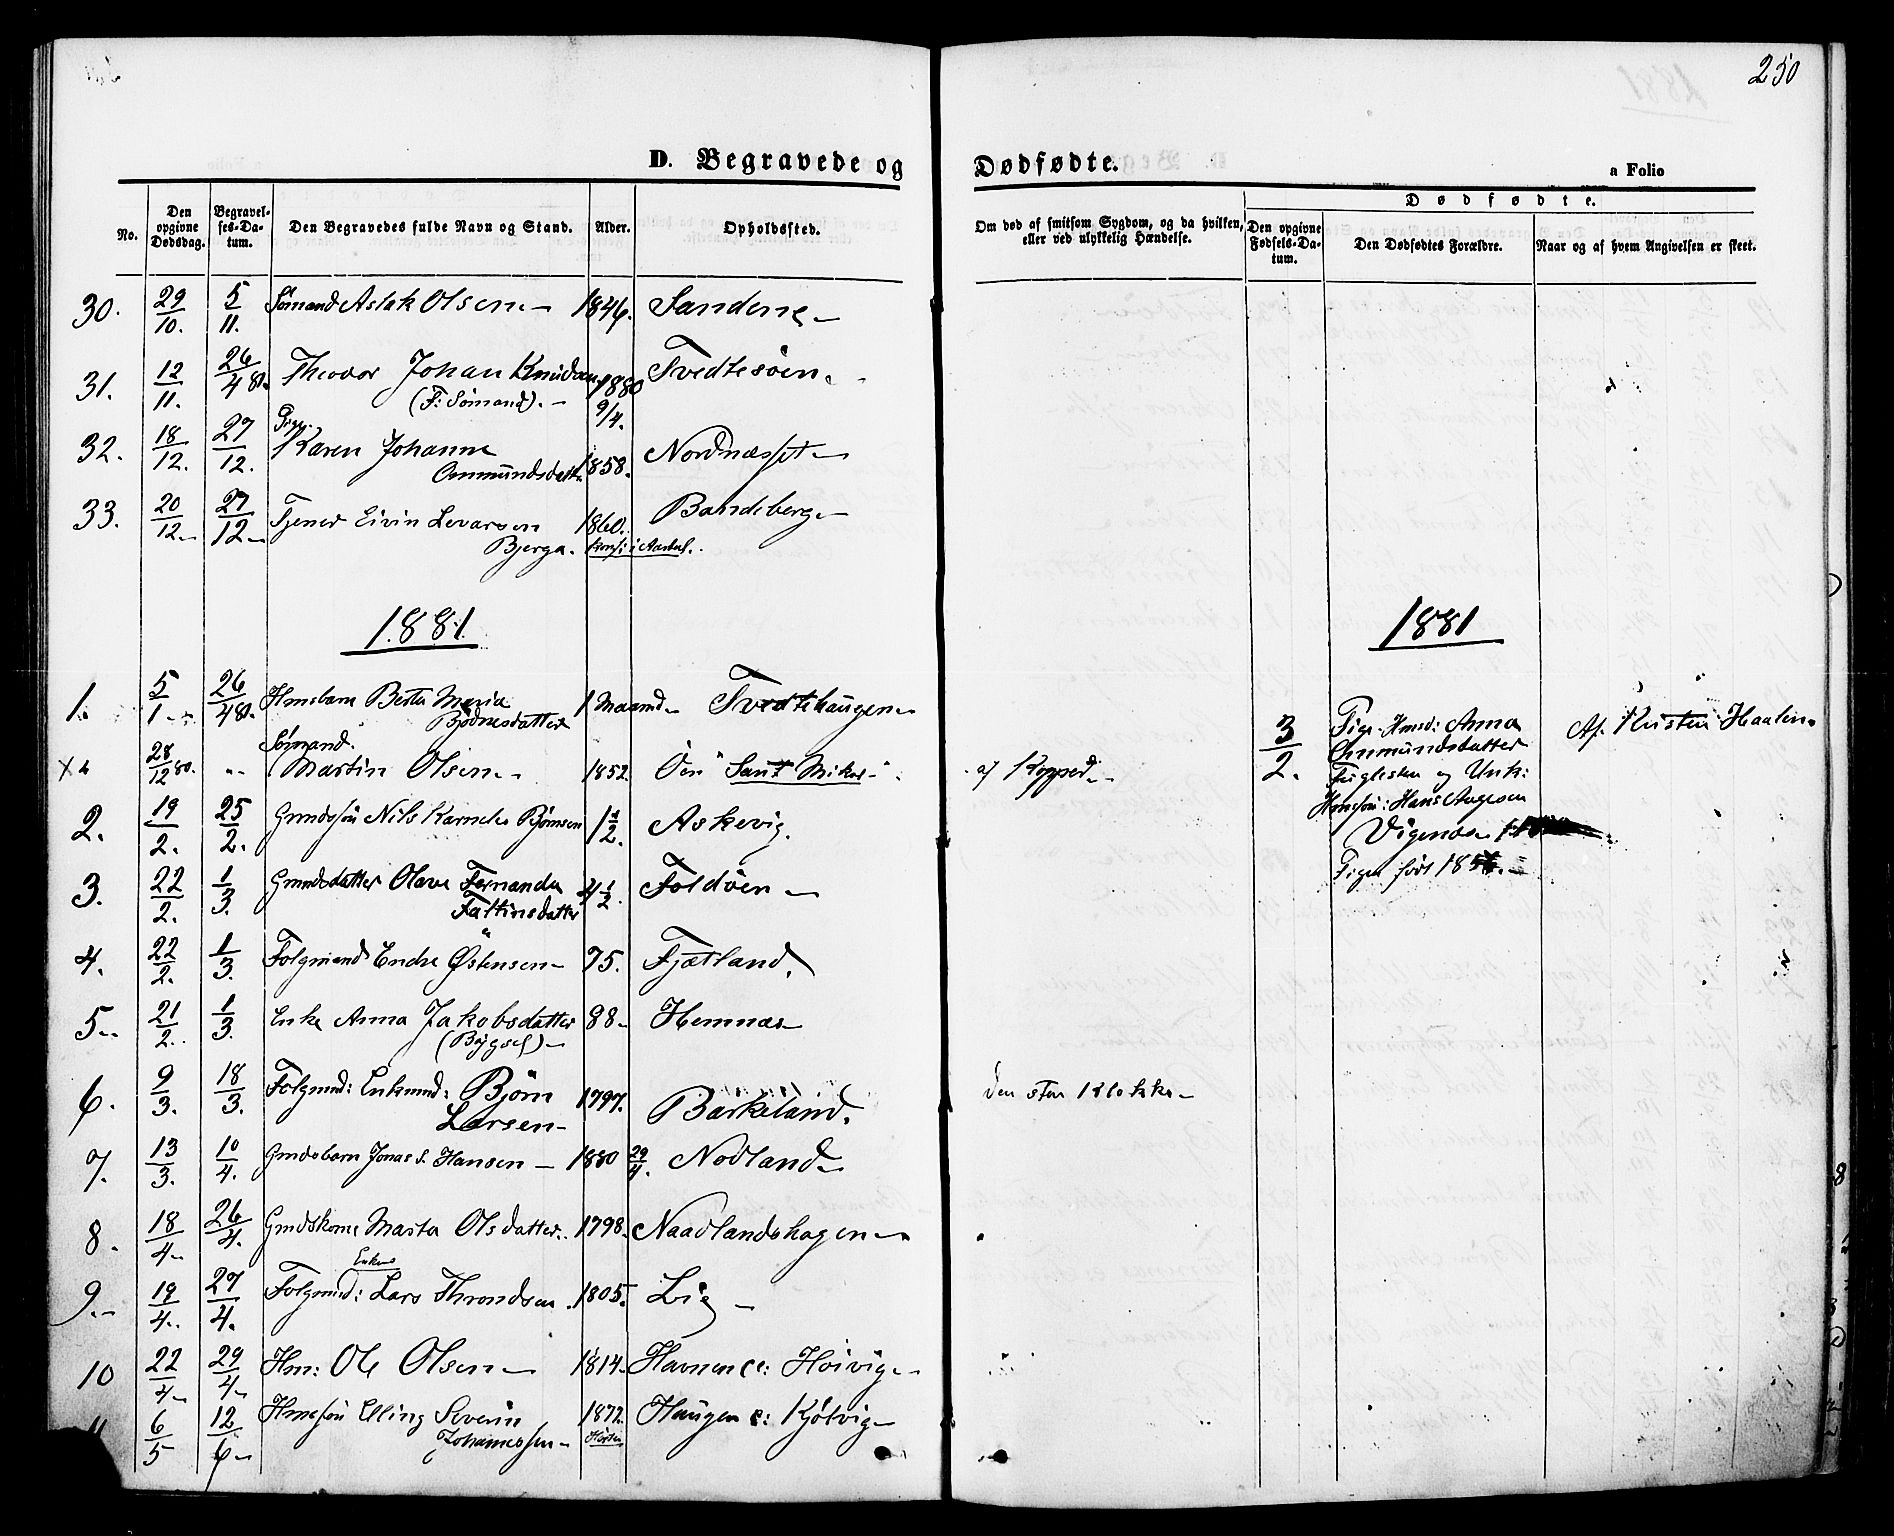 250
D. Begravede og Dødfødte.
a Folio
No.
Den opgivne Dødsdag.
Begravelses-Datum.
Den Begravedes fulde Navn og Stand.
Alder.
Opholdssted.
Om død af smitsom Sygdom, og da hvilken, eller ved ulykkelig Hændelse.
Dødfødte.
Den opgivne Fødsels-Datum.
Den Dødfødtes Forældre.
Naar og af hvem Angivelsen er skeet.
30. 29/10. 5/11. Sømand Aslak Olsen 1846. Sandene
31. 12/11. 26/4 81. Theodor Johan Knudsen 1880 Tvedtesöen
(F: Sømand).
9/4.
32. 18/12. 27/12. Pige Karen Johanne
Ommundsdatt. 1858. Nordnæsset
33. 20/12 27/12 Tjener Eivin Levarsen 1860. Bandeberg
Bjerga.
1881.
1881
1. 5/1 26/4 81. Hmsbarn Berta Maria 1 Maaned Tvedtehaugen
Bjödnesdatter
Sømand.
X 28/12 80. " Martin Olsen 1852. Öen "Sant Mikal" af Kopper
2. 19/2. 25/2. Gmdssön Nils Karnelis Björnsen 1 1/2. Askevig.
3. 22/2. 1/3. Gmdsdatter Olava Fernanda 4 1/2. Foldöen
Tattinsdatter
4. 22/2. 1/3. Folgmand Endre Østensen 75. Fjætland.
5. 21/2. 1/3. Enke Anna Jakobsdatter 88 Hemnæs
(Bygsel)
6. 9/3. 18/3. Folgmd: Enkemd: Björn 1797. Barkeland.
Larsen
7. 13/3. 10/4. Gmdsbarn Jonas S. Hansen 1880 29/4. Nodland
8. 18/4 26/4. Gmdskone Marta Olsdatter 1798. Naadlandshagen
Enkem
9. 19/4. 27/4. Folgmd: Lars Throndsen 1805. Lig
10 22/4 29/4 Hm: Ole Olsen 1814 Havnen e: Hoivig
11 6/5 12/6 Hmssön Elling Severin 1872. Haugen e: Kjölvig
Johannessen
3/2.
Pige Hmsd: Anna
Ommundsdatter
Fuglesten og Unk:
Hmssön: Hans Aagesen
Vigenæs
Pigen född 18
Af Kristen Haalen